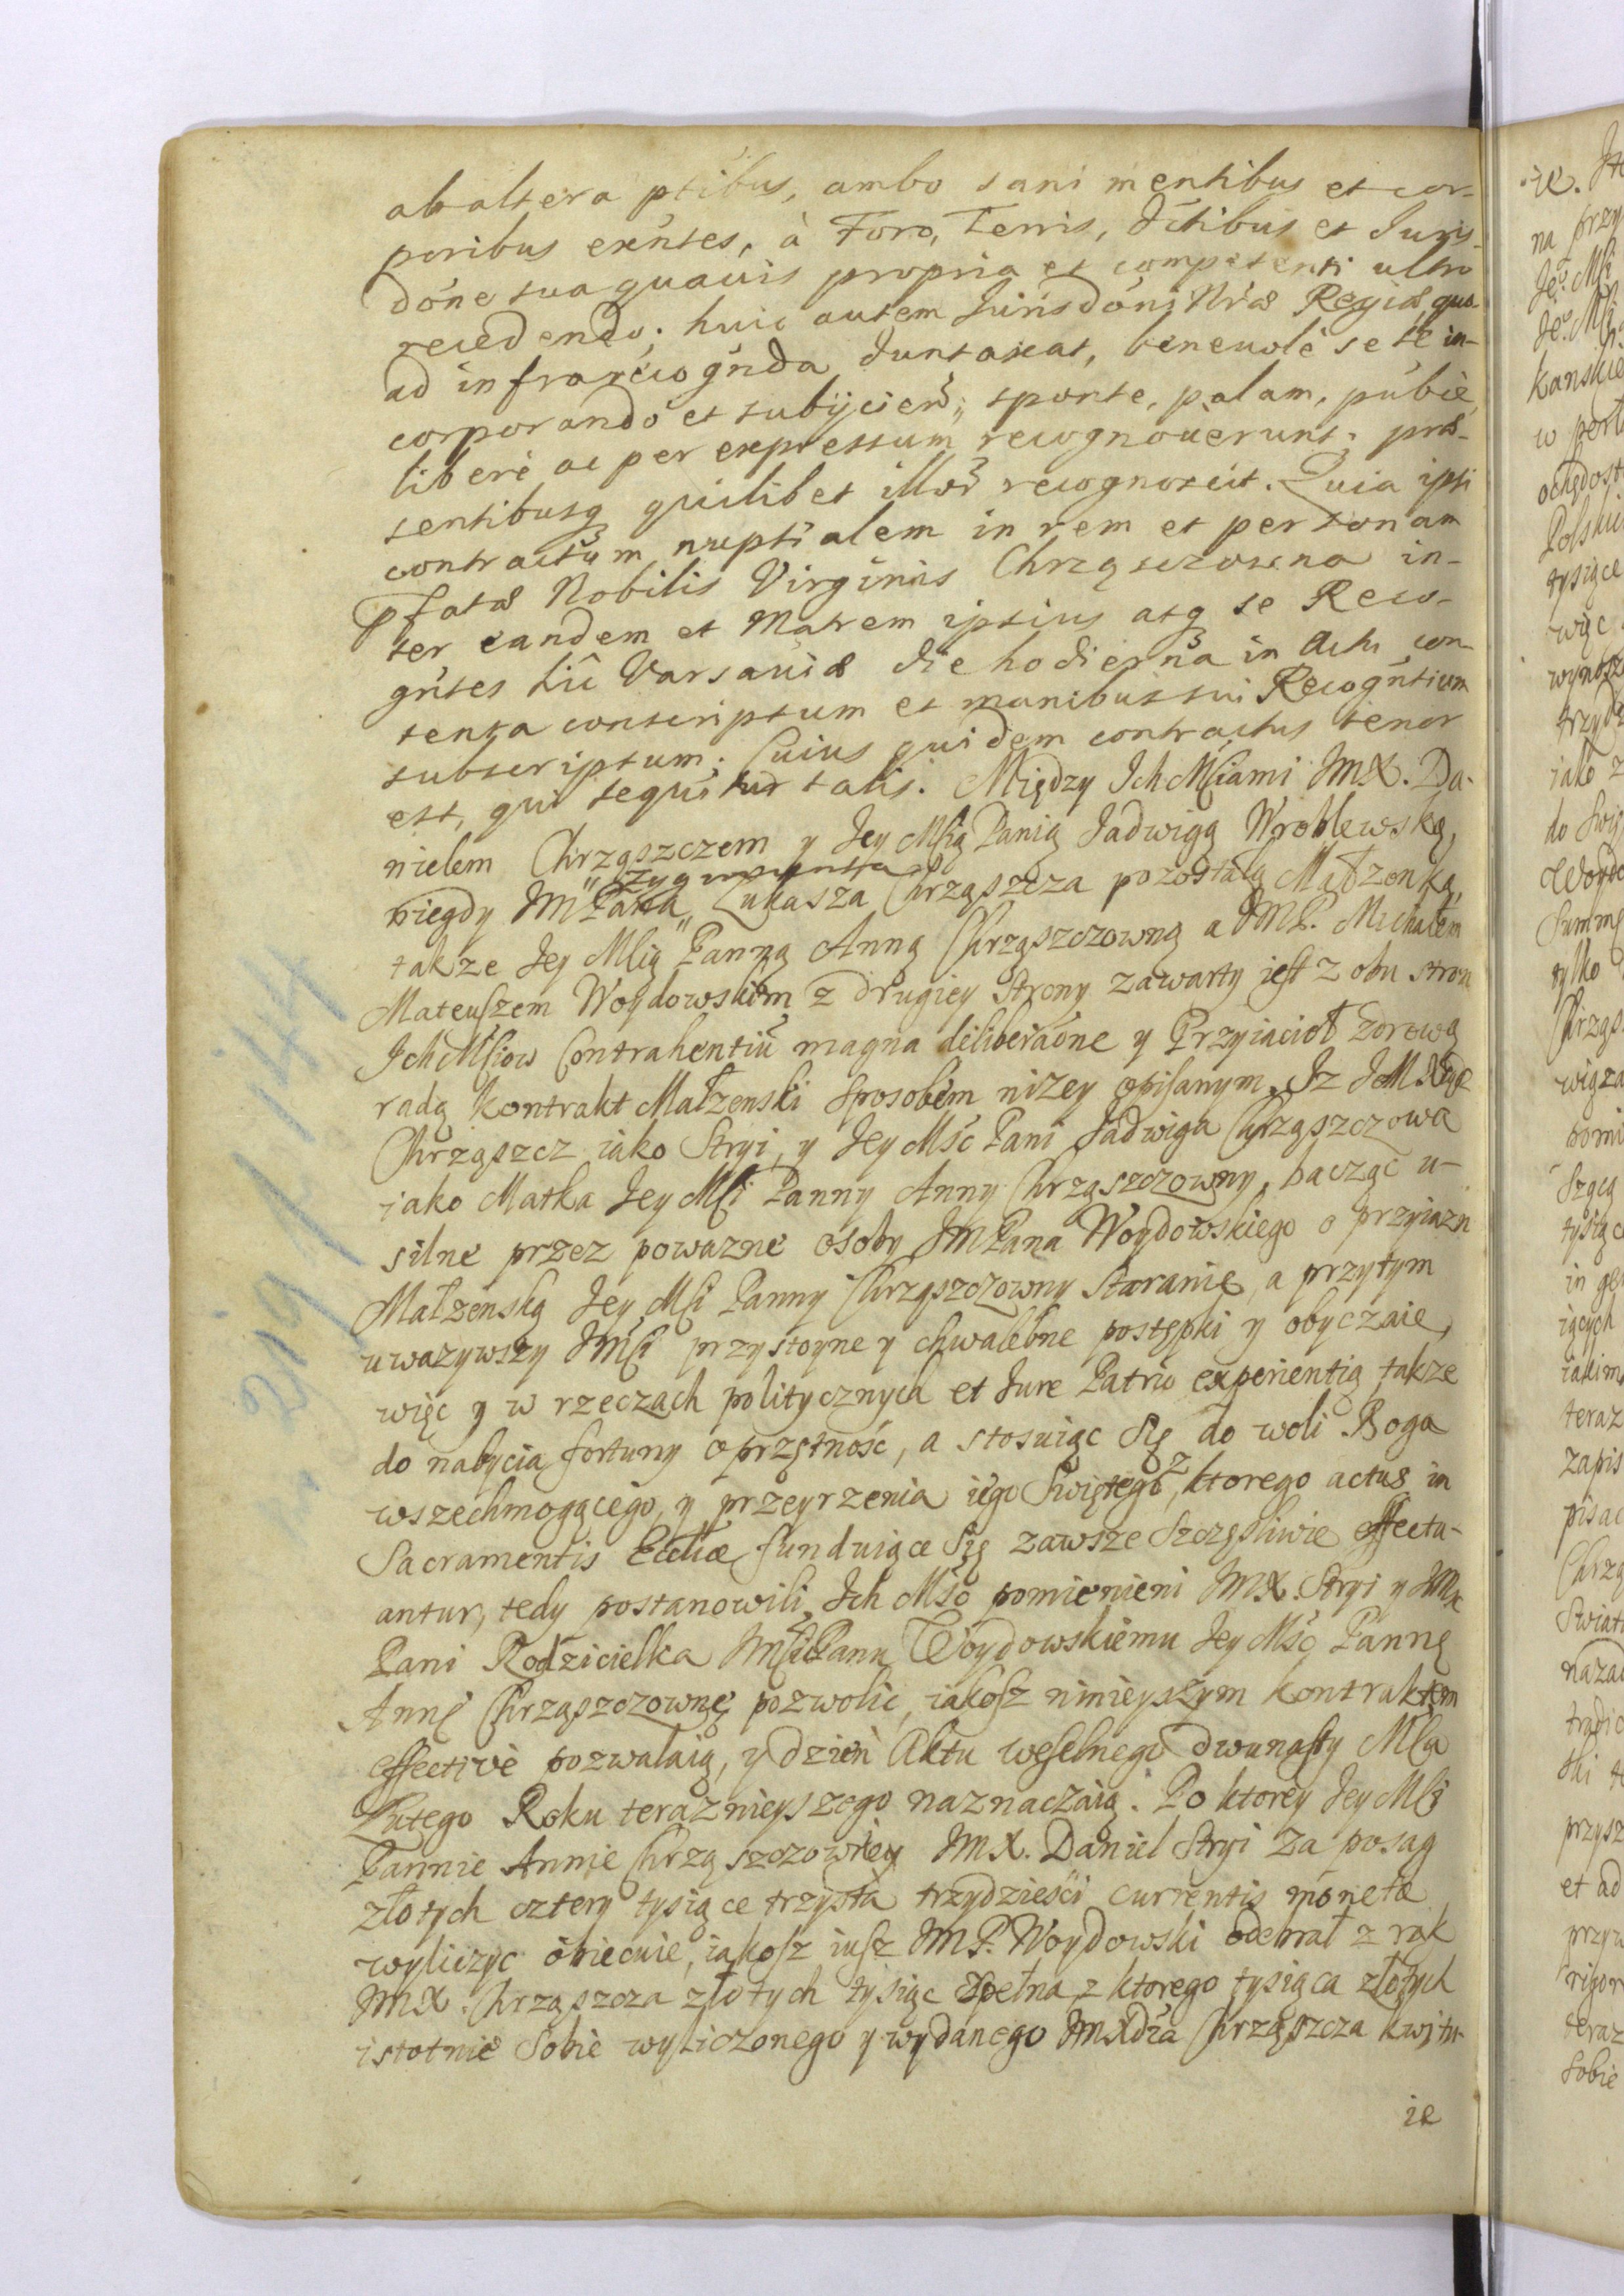 ab altera ptibus, ambo sani mentibus et cor-
poribus exentes, à Foro, Terris, dctibus et Juris-
done sua quavis propria et competenti ultro
recedendo; huic autem Jurisdoni Nræ Regiæ quo-
ad infrarecognda duntaxat, benevole se se in-
corporando et subijciend; sponte, palam, publce,
libere ac per expressum recognoverunt, præ-
sentibusq quilibet illor recognoscit. Quia ipsi
contractum nuptialem in rem et personam
pfatæ Nobilis Virginis Chrząszczowna in-
ter eandem et Matrem ipsius atq se Reco-
gntes hic Varsaviæ die hodierna in Actu con-
tenta conscriptum et manibus sui Recogntium
subscriptum; Cuius quidem contractus tenor
est, qui sequitur talis. Między Ich Mściami JMX. Da-
nielem Chrząszczem y Jey Mścią Panią Jadwigą Wroblewską,
niegdy JM Pana Zygmunta Łukasza Chrząszcza pozostałą Małzonką,
takze Jey Mścią Panną Anną Chrząszczowną a JMP. Michałem
Mateuszem Woydowskim z drugiey Strony zawarty iest z obu stron
Ich Mściow Contrahentiu magna deliberaone y Przyiacioł zdrową
radą Kontrakt Małzenski sposobem nizey opisanym. Iz JMX
Chrząszcz iako Stryi, y Jey Mść Pani Jadwiga Chrząszczowa
iako Matka Jey Mści Panny Anny Chrząszczowny, bacząc u-
silne przez powazne osoby JM Pana Woydowskiego o przyiazn
Małzenską Jey Mści Panny Chrząszczowny Staranie, a przytym
uwazywszy JMści przystoyne y chwalebne postępki y obyczaie,
więc y w rzeczach politycznych et Jure Patrio experientią, takze
do nabycia fortuny oprzętność, a stosuiąc się do woli Boga
wszechmogącego, y przeyrzenia iego Swiętego, z ktorego actus in
Sacramentis Eccliæ funduiące się zawsze Szczęsliwie effectu-
antur, tedy postanowili Ich Mść pomienieni JMX. Stryi y JM
Pani Rodzicielka JMści Panu Woydowskiemu Jey Mść Pannę
Annę Chrząszczownę pozwolic, iakosz ninieyszym kontraktem
effective pozwalaią, y dzień Aktu weselnego dwunasty Msca
Lutego Roku teraznieyszego naznaczaią. Po ktorey Jey Mści
Pannie Annie Chrząszczowney JMX. Daniel Stryi za posag
złotych cztery tysiące trzysta trzydzieści currentis monetæ
wyliczyc obiecuie, iakosz iusz JMP. Woydowski odebrał z rąk
JMX. Chrząszcza złotych tysiąc spełna, z ktorego tysiąca złotych
istotnie sobie wyliczonego y wydanego JMXdza Chrząszcza kwitu-
ie